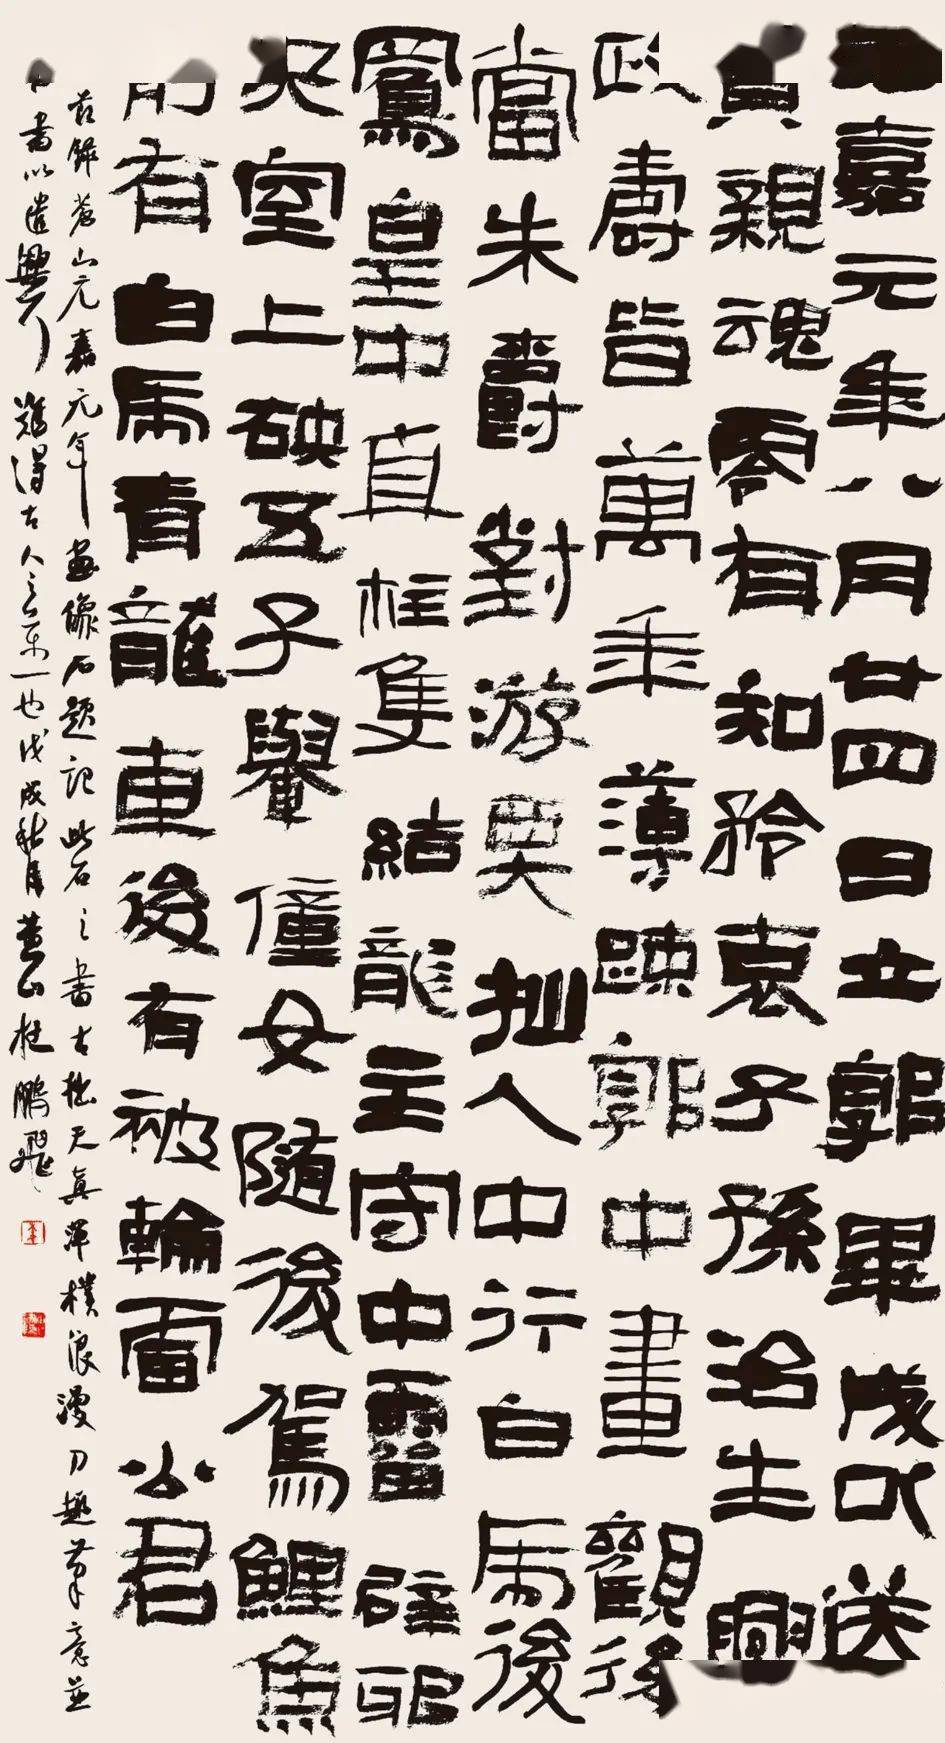 嘉元年八月廿四日立郭畢成以送
貴親魂零有知矜哀子孫治生興
政壽皆萬年薄踈郭中畫觀後
當朱爵對游抛人中行白虎後
鳳皇中直柱隻結龍主守中霤辟邪
夾室上硤五子轝僮女隨後駕鯉魚
前有白虎青龍車後有被輪雷公君
節錄蒼山元嘉元年畫像石題記此石之書古拙天真渾樸浪漫刀趣筆意並
書以遣興耳難得古人之万一也戊戌秋月黃山桂鵬飛